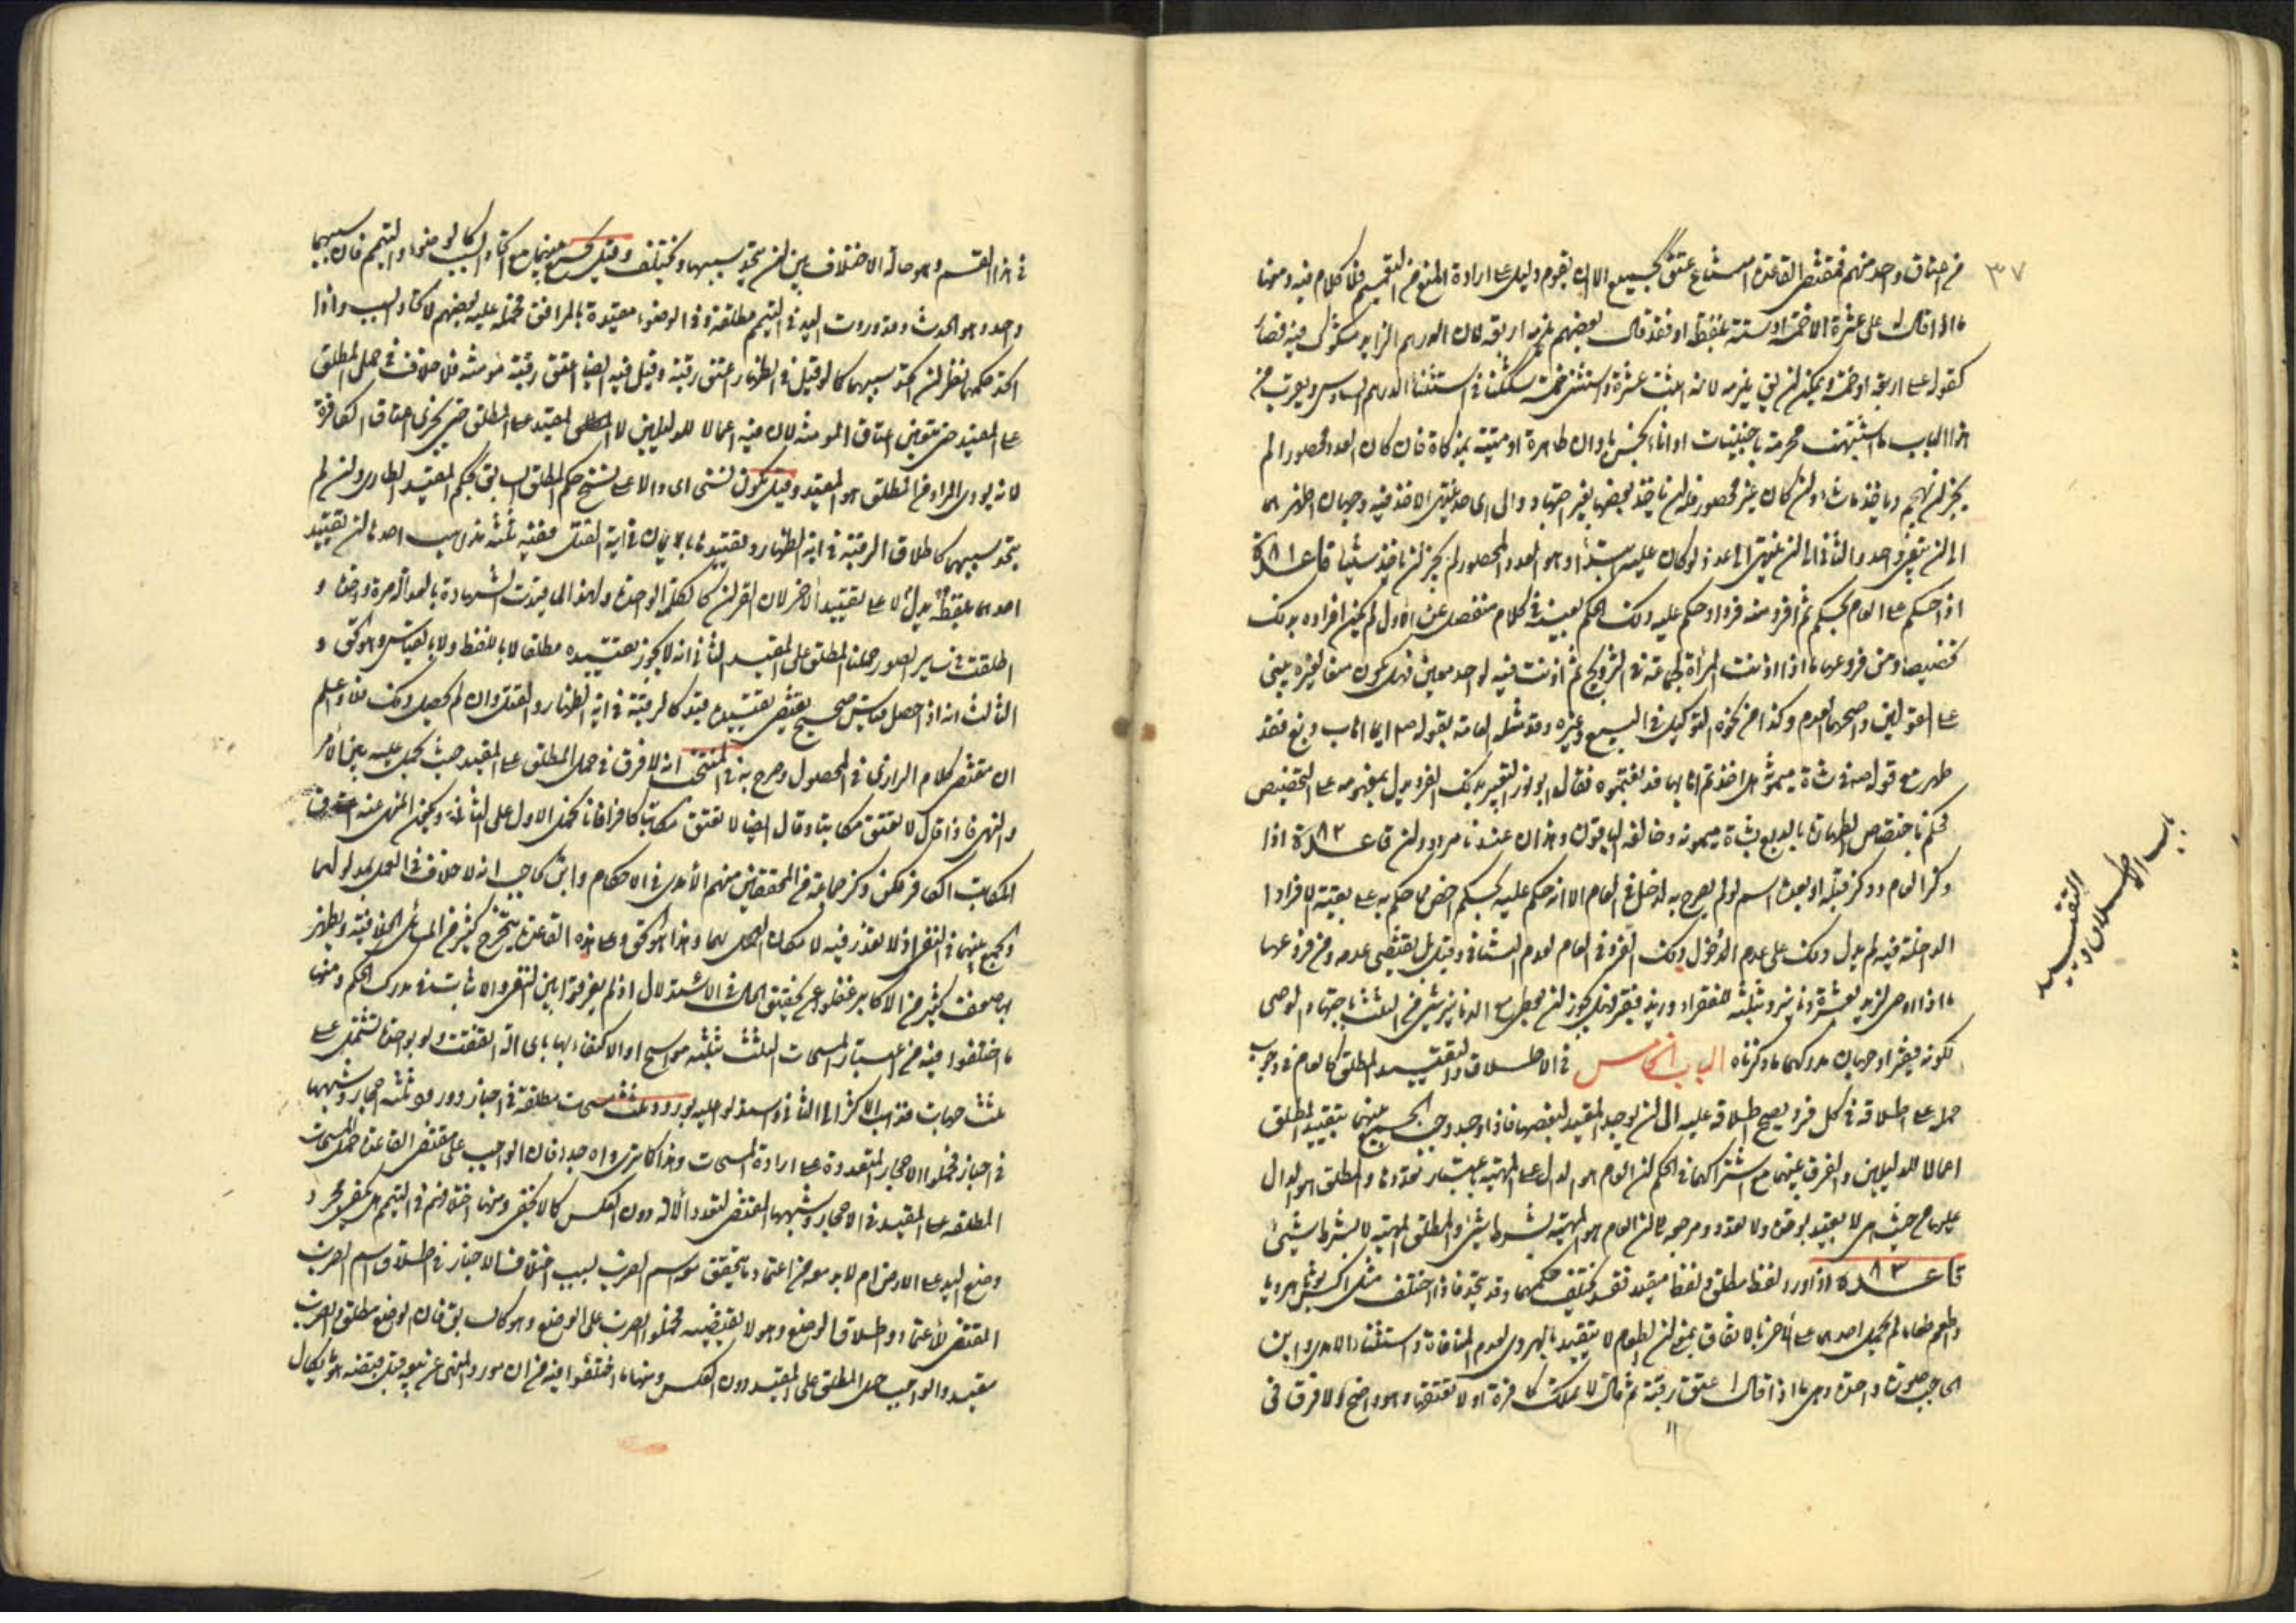 ٣٧
من اعتاق واحد منهم فمقتضى القاعدة امتناع عتق الجميع الا ان يقوم دليل على ارادة المنع من التعميم فلا كلام فيه ومنها
ما اذا قال له على عشرة الا خمسة او ستة بلفظ او فقد قال بعضهم يلزمه اربعة لان الدرهم الزايد مشكوك فيه فصار
كقوله على اربعة او خمسة ويمكن ان يلزمه لانه اثبت عشرة واستثنى خمسة شككنا في استثناء الدرهم السادس ويقرب من
هذا الباب ما اشتبهت محرمة باجنبيات او اناء نجس باوان طاهرة او ميتة بمذكاة فان كان العدد محصورا لم
يجز ان يهجم وياخذ ما شاء وان كان غير محصور فله ان ياخذ بعضها بغير اجتهاد والى اى حد ينتهى الاخذ فيه وجهان اظهرهما
الى ان يبقى واحد والثاني الى ان ينتهى الى عدد لو كان عليه ابتداء وهو العدد المحصور لم يجز ان ياخذ شيئا قاعدة ٨١
اذا حكم على العام بحكم ثم افرد منه فردا وحكم عليه بذلك الحكم بعينه في كلام منفصل عن الاول لم يكن افراده بذلك
تخصيصا ومن فروعها ما اذا اذنت المرأة لجماعة في التزويج ثم اذنت فيه لواحد معين فهل يكون منعا لغيره يبنى
على القولين واصحهما العدم وكذا من نحوه التوكيل في البيع وغيره وقد مثله العامة بقوله ص ايما اهاب دبغ فقد
طهر مع قوله ص في شاة ميمونة هلا اخذتم اهابها فدبغتموه فقال ابو ثور التعبير بذلك الفرد يدل بمفهومه على التخصيص
فحكم باختصاص الطهارة بالدبغ بشاة ميمونة وخالفه الباقون وهذان عندنا مردودان قاعدة ٨٢ اذا
ذكر العام وذكر قبله او بعده اسم لو لم يصرح به لدخل في العام الا انه حكم عليه بحكم اخص مما حكم به على بقية الافراد ا
الداخلة فيه لم يدل ذلك على عدم الدخول ذلك الفرد في العام لعدم التنافي وقيل بل يقتضى عدمه ومن فروعها
ما اذا اوصى لزيد بعشرة دنانير وبثلثه للفقراء وزيد فقير فهل يجوز ان يعطى مع الدنانير شئ من الثلث باجتهاد الوصى
لكونه فقيرا وجهان مدركهما ما ذكرناه الباب الخامس في الاطلاق والتقييد المطلق كالعام في وجوب
حمله على اطلاقه في كل فرد يصح اطلاقه عليه الى ان يوجد المقيد لبعضها فاذا وجد وجب الجمع بينهما بتقييد المطلق
اعمالا للدليلين والفرق بينهما مع اشتراكهما في الحكم ان العام هو الدال على المهية باعتبار تعددها والمطلق هو الدال
عليها من حيث هى لا بقيد لوحدة ولا تعدد ومرجعه الى ان العام هو المهية بشرط شئ والمطلق المهية لا بشرط شئ
قاعدة ٨٣ اذا ورد لفظ مطلق ولفظ مقيد فقد يختلف حكمهما وقد يتحد فاذا اختلف مثل اكس ثوبا هرويا
واطعم طعاما لم يحمل احدهما على الاخر بالاتفاق بمعنى ان الطعام لا يتقيد بالهروى لعدم المنافاة واستثناء الامدى وابن
الحاجب صورة واحدة وهى ما اذا قال اعتق رقبة ثم قال لا تملك كافرة او لا تعتقها وهو واضح ولا فرق فى
باب الاطلاق و
التقييد
في هذا القسم وهو حالة الاختلاف بين ان يتحد سببهما ويختلف وقيل يجمع بينهما مع اتحاد السبب كالوضوء والتيمم فان سببهما
واحد وهو الحدث وقد وردت اليد في التيمم مطلقة وفي الوضوء مقيدة بالمرافق فحمله عليه بعضهم لاتحاد السبب واذا
اتحد حكمهما نظر ان اتحد سببهما كما لو قيل في الظهار اعتق رقبة وقيل فيه ايضا اعتق رقبة مومنة فلا خلاف في حمل المطلق
على المقيد حتى يتعين اعتاق المومنة لان فيه اعمالا للدليلين لا المقيد على المطلق حتى يجزى اعتاق الكافرة
لانه يودى المراد من المطلق هو المقيد وقيل يكون نسخا اى دالا على نسخ حكم المطلق السابق بحكم المقيد الطارى وان لم
يتحد سببهما كاطلاق الرقبة في اية الظهار وتقييدها بالايمان في اية القتل ففيه ثلثة مذاهب احدها ان تقييد
احدهما بلفظه يدل على تقييد الاخر لان القران كالكلمة الواحدة ولهذا لما قيدت الشهادة بالعدالة مرة واحدة و
اطلقت في ساير الصور حملنا المطلق على المقيد الثاني انه لا يجوز تقييده مطلقا لا باللفظ ولا بالقياس وهو الحق و
الثالث انه اذا حصل قياس صحيح يقتضى تقييده قيد كالرقبة في اية الظهار والقتل وان لم يحصل ذلك فلا واعلم
ان مقتضى كلام الرازى في المحصول وصرح به في المنتخب انه لا فرق في حمل المطلق على المقيد حيث يحمل عليه بين الامر
والنهى فاذا قال لا تعتق مكاتبا وقال ايضا لا تعتق مكاتبا كافرا فانا نحمل الاول على الثاني ويكون المنهى عنه اعتاق
المكاتب الكافر لكن ذكر جماعة من المحققين منهم الامدى في الاحكام وابن الحاجب انه لا خلاف في العمل بمدلولهما
والجمع بينهما في النفى اذ لا تعذر فيه لامكان العمل بهما وهذا هو الحق وعلى هذه القاعدة يتخرج كثير من المسائل الخلافية ويظهر
بها ضعف كثير من الاكابر غفلوا عن تحقيق الحال في الاستدلال اذ لم يفرقوا بين النفى والاثبات في مدرك الحكم ومنها
ما اختلفوا فيه من اعتبار المسحات الثلث بثلثة مواسح او الاكتفاء بها باى الة اتفقت ولو بواحدة تشتمل على
ثلث جهات فذهب الاكثر الى الثاني واستدلوا عليه بورود ثلث مسحات مطلقة في اخبار وورود ثلثة احجار وشبهها
في اخبار فحملوا الاحجار المتعددة على ارادة المسحات وهذا كما ترى واه جدا فان الواجب على مقتضى القاعدة حمل المسحات
المطلقة على المقيد في الاحجار وشبهها المقتضى لتعدد الالة دون العكس كما لا يخفى ومنها اختلافهم في التيمم هل يكفى مجرد
وضع اليد على الارض ام لا بد معه من اعتماد ما يتحقق معه اسم الضرب لسبب اختلاف الاخبار في اطلاق اسم الضرب
المقتضى للاعتماد واطلاق الوضع وهو لا يقتضيه فحملوا الضرب على الوضع وهو كالسابق فان الوضع مطلق والضرب
مقيد والواجب حمل المطلق على المقيد دون العكس ومنها ما اختلفوا فيه من ان مورد النهى عن بيعه قبل قبضه هو ما يكال